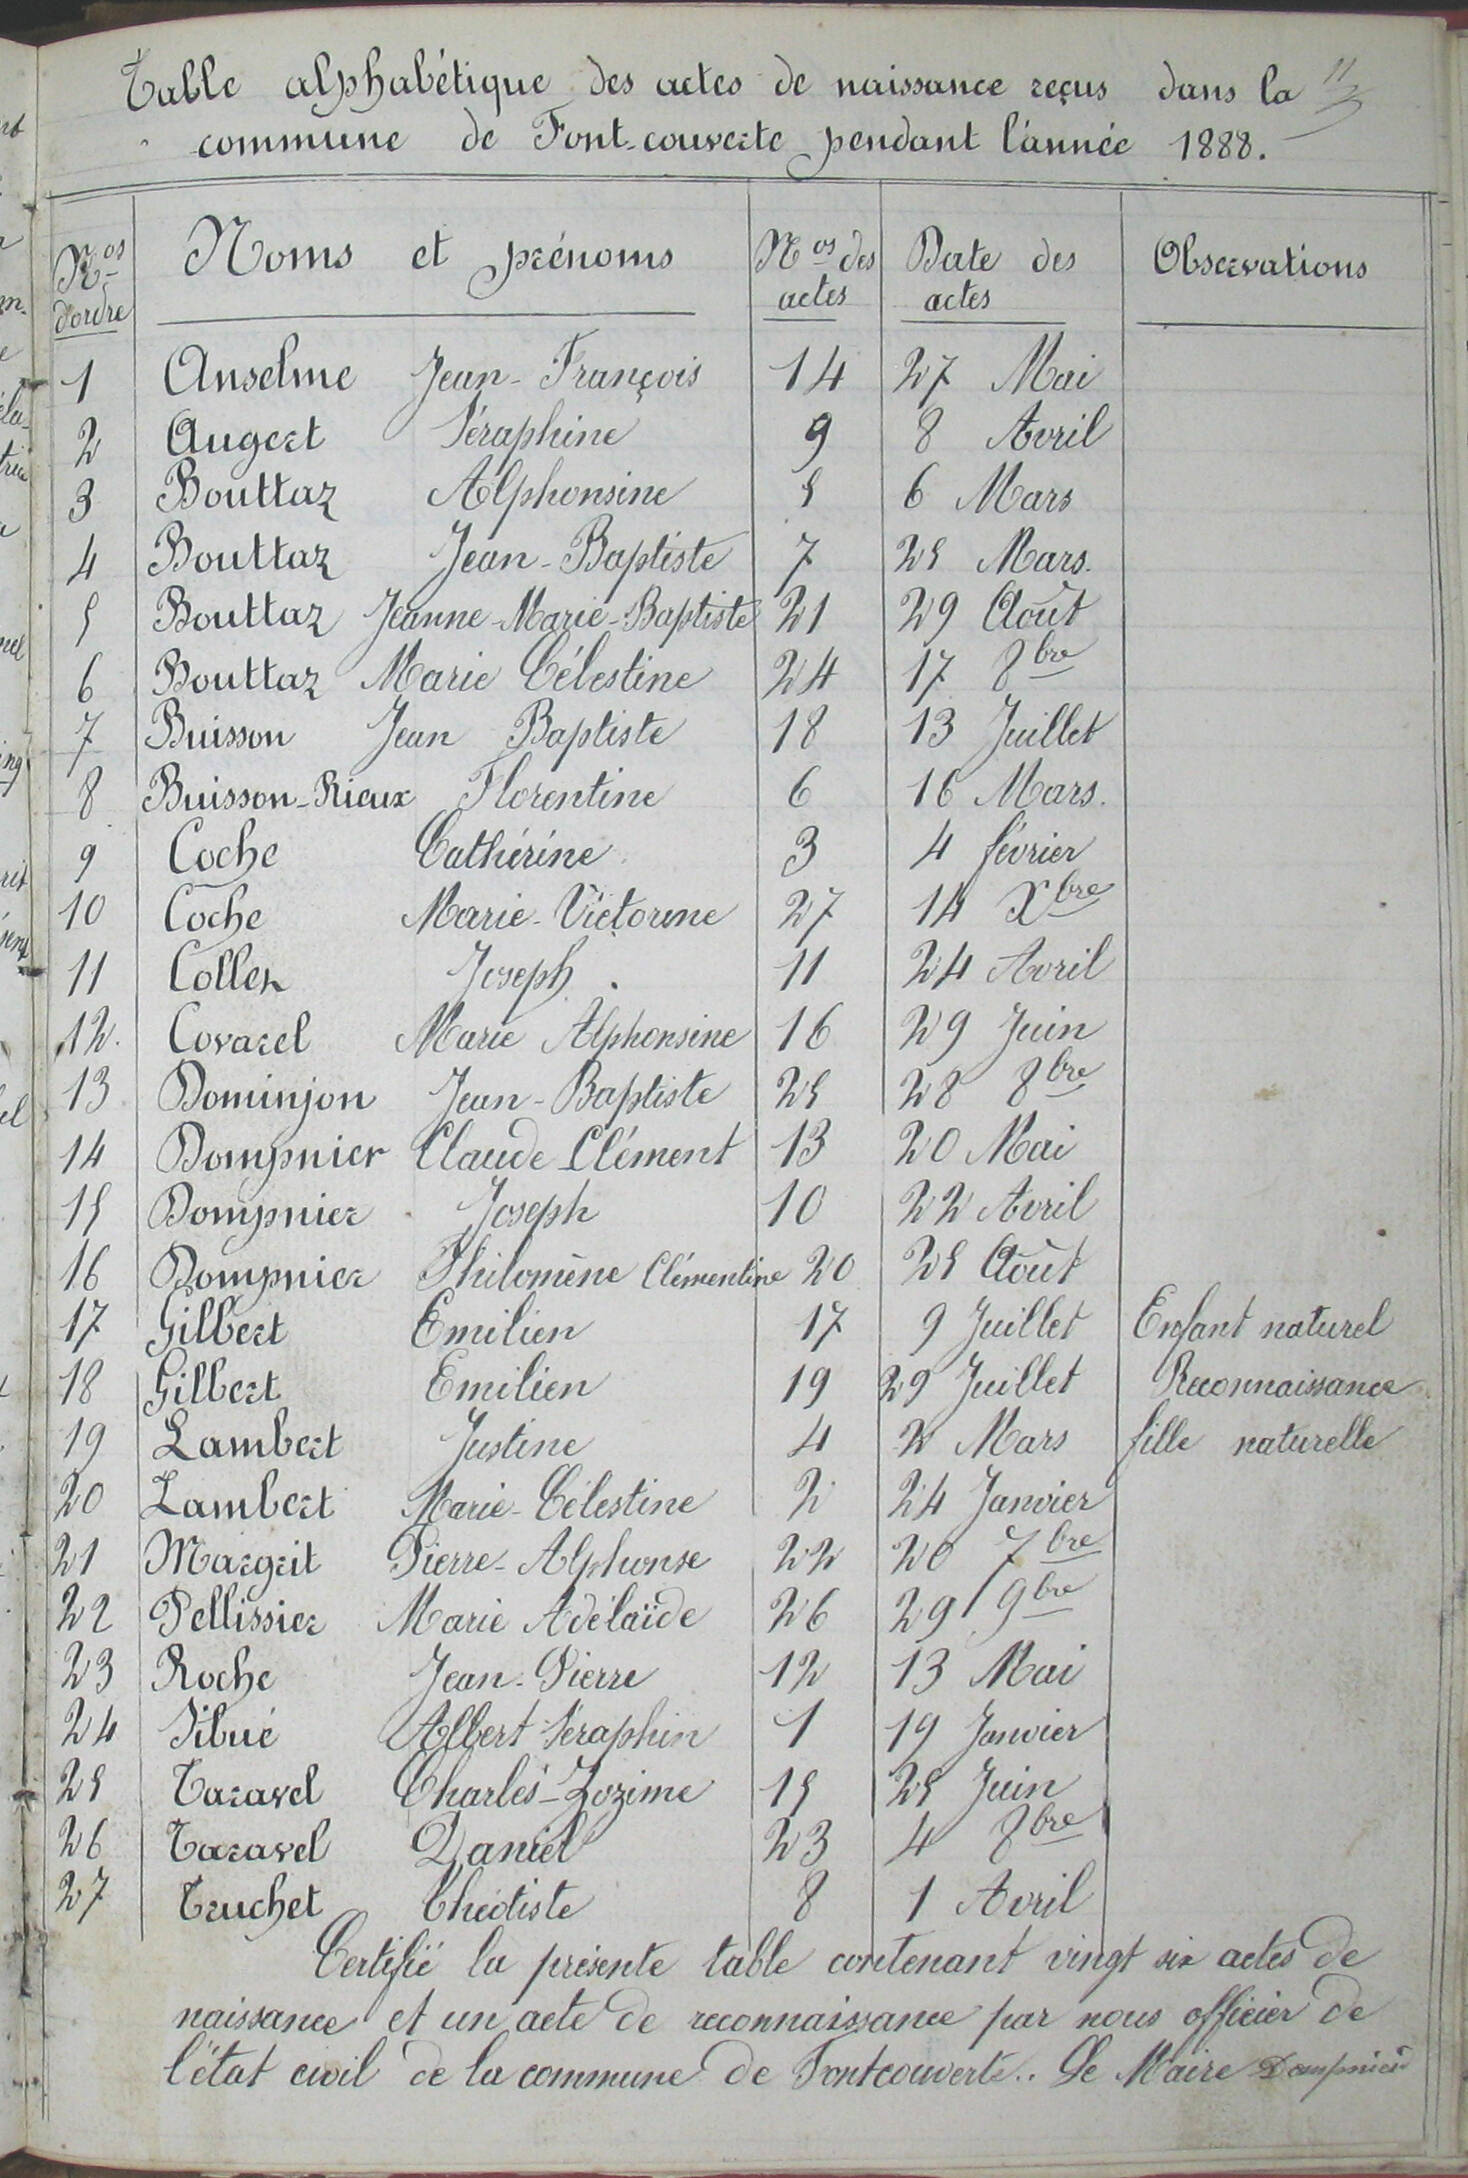 Table alphabétique des actes de naissance reçus dans la
commune de Font-couverte pendant l'année 1888.
Nos d'ordre Noms et prénoms Nos des actes Date des actes Observations
1 Anselme Jean-François 14 27 Mai
2 Augert Séraphine 9 8 Avril
3 Bouttaz Alphonsine 5 6 Mars
4 Bouttaz Jean-Baptiste 7 25 Mars.
5 Bouttaz Jeanne-Marie-Baptiste 21 29 Août
6 Bouttaz Marie Célestine 24 17 8bre
7 Buisson Jean Baptiste 18 13 Juillet
8 Buisson-Rieux Florentine 6 16 Mars.
9 Coche Cathérine 3 4 février
10 Coche Marie-Victorine 27 14 Xbre
11 Collet Joseph 11 24 Avril
12. Covarel Marie Alphonsine 16 29 Juin
13 Dominjon Jean-Baptiste 25 28 8bre
14 Dompnier Claude Clément 13 20 Mai
15 Dompnier Joseph 10 22 Avril
16 Dompnier Philomène Clémentine 20 25 Août
17 Gilbert Emilien 17 9 Juillet Enfant naturel
18 Gilbert Emilien 19 29 Juillet Reconnaissance
19 Lambert Justine 4 2 Mars fille naturelle
20 Lambert Marie-Célestine 2 24 Janvier
21 Margrit Pierre-Alphonse 22 20 7bre
22 Pellissier Marie Adélaïde 26 29 9bre
23 Roche Jean-Pierre 12 13 Mai
24 Sibué Albert Séraphin 1 19 Janvier
25 Taravel Charles-Zozime 15 25 Juin
26 Taravel Daniel 23 4 8bre
27 Truchet Théotiste 8 1 Avril
Certifié la présente table contenant vingt six actes de
naissance et un acte de reconnaissance par nous officier de
l'état civil de la commune de Fontcouverte.. Le Maire Dompnier